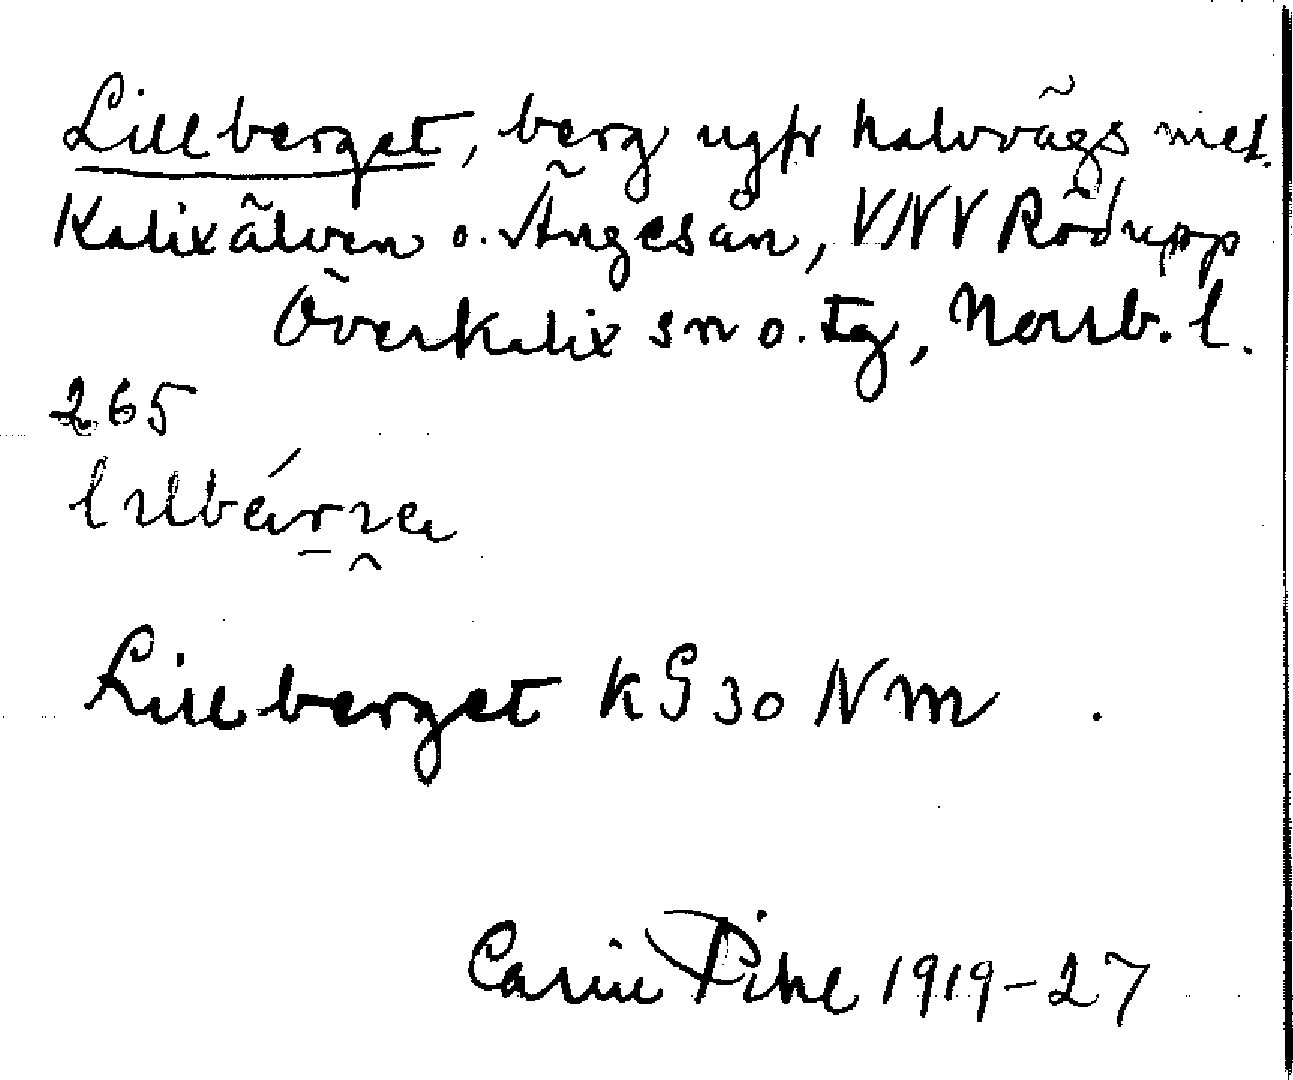 Lillberget, berg ugfr halvvägs mel.
Kalixälven o. Ängesån, VNV Rödupp
Överkalix sn o. tg, Norrb. l.
265
Lillberget KG 30 NM
Carin Pihl 1919-27